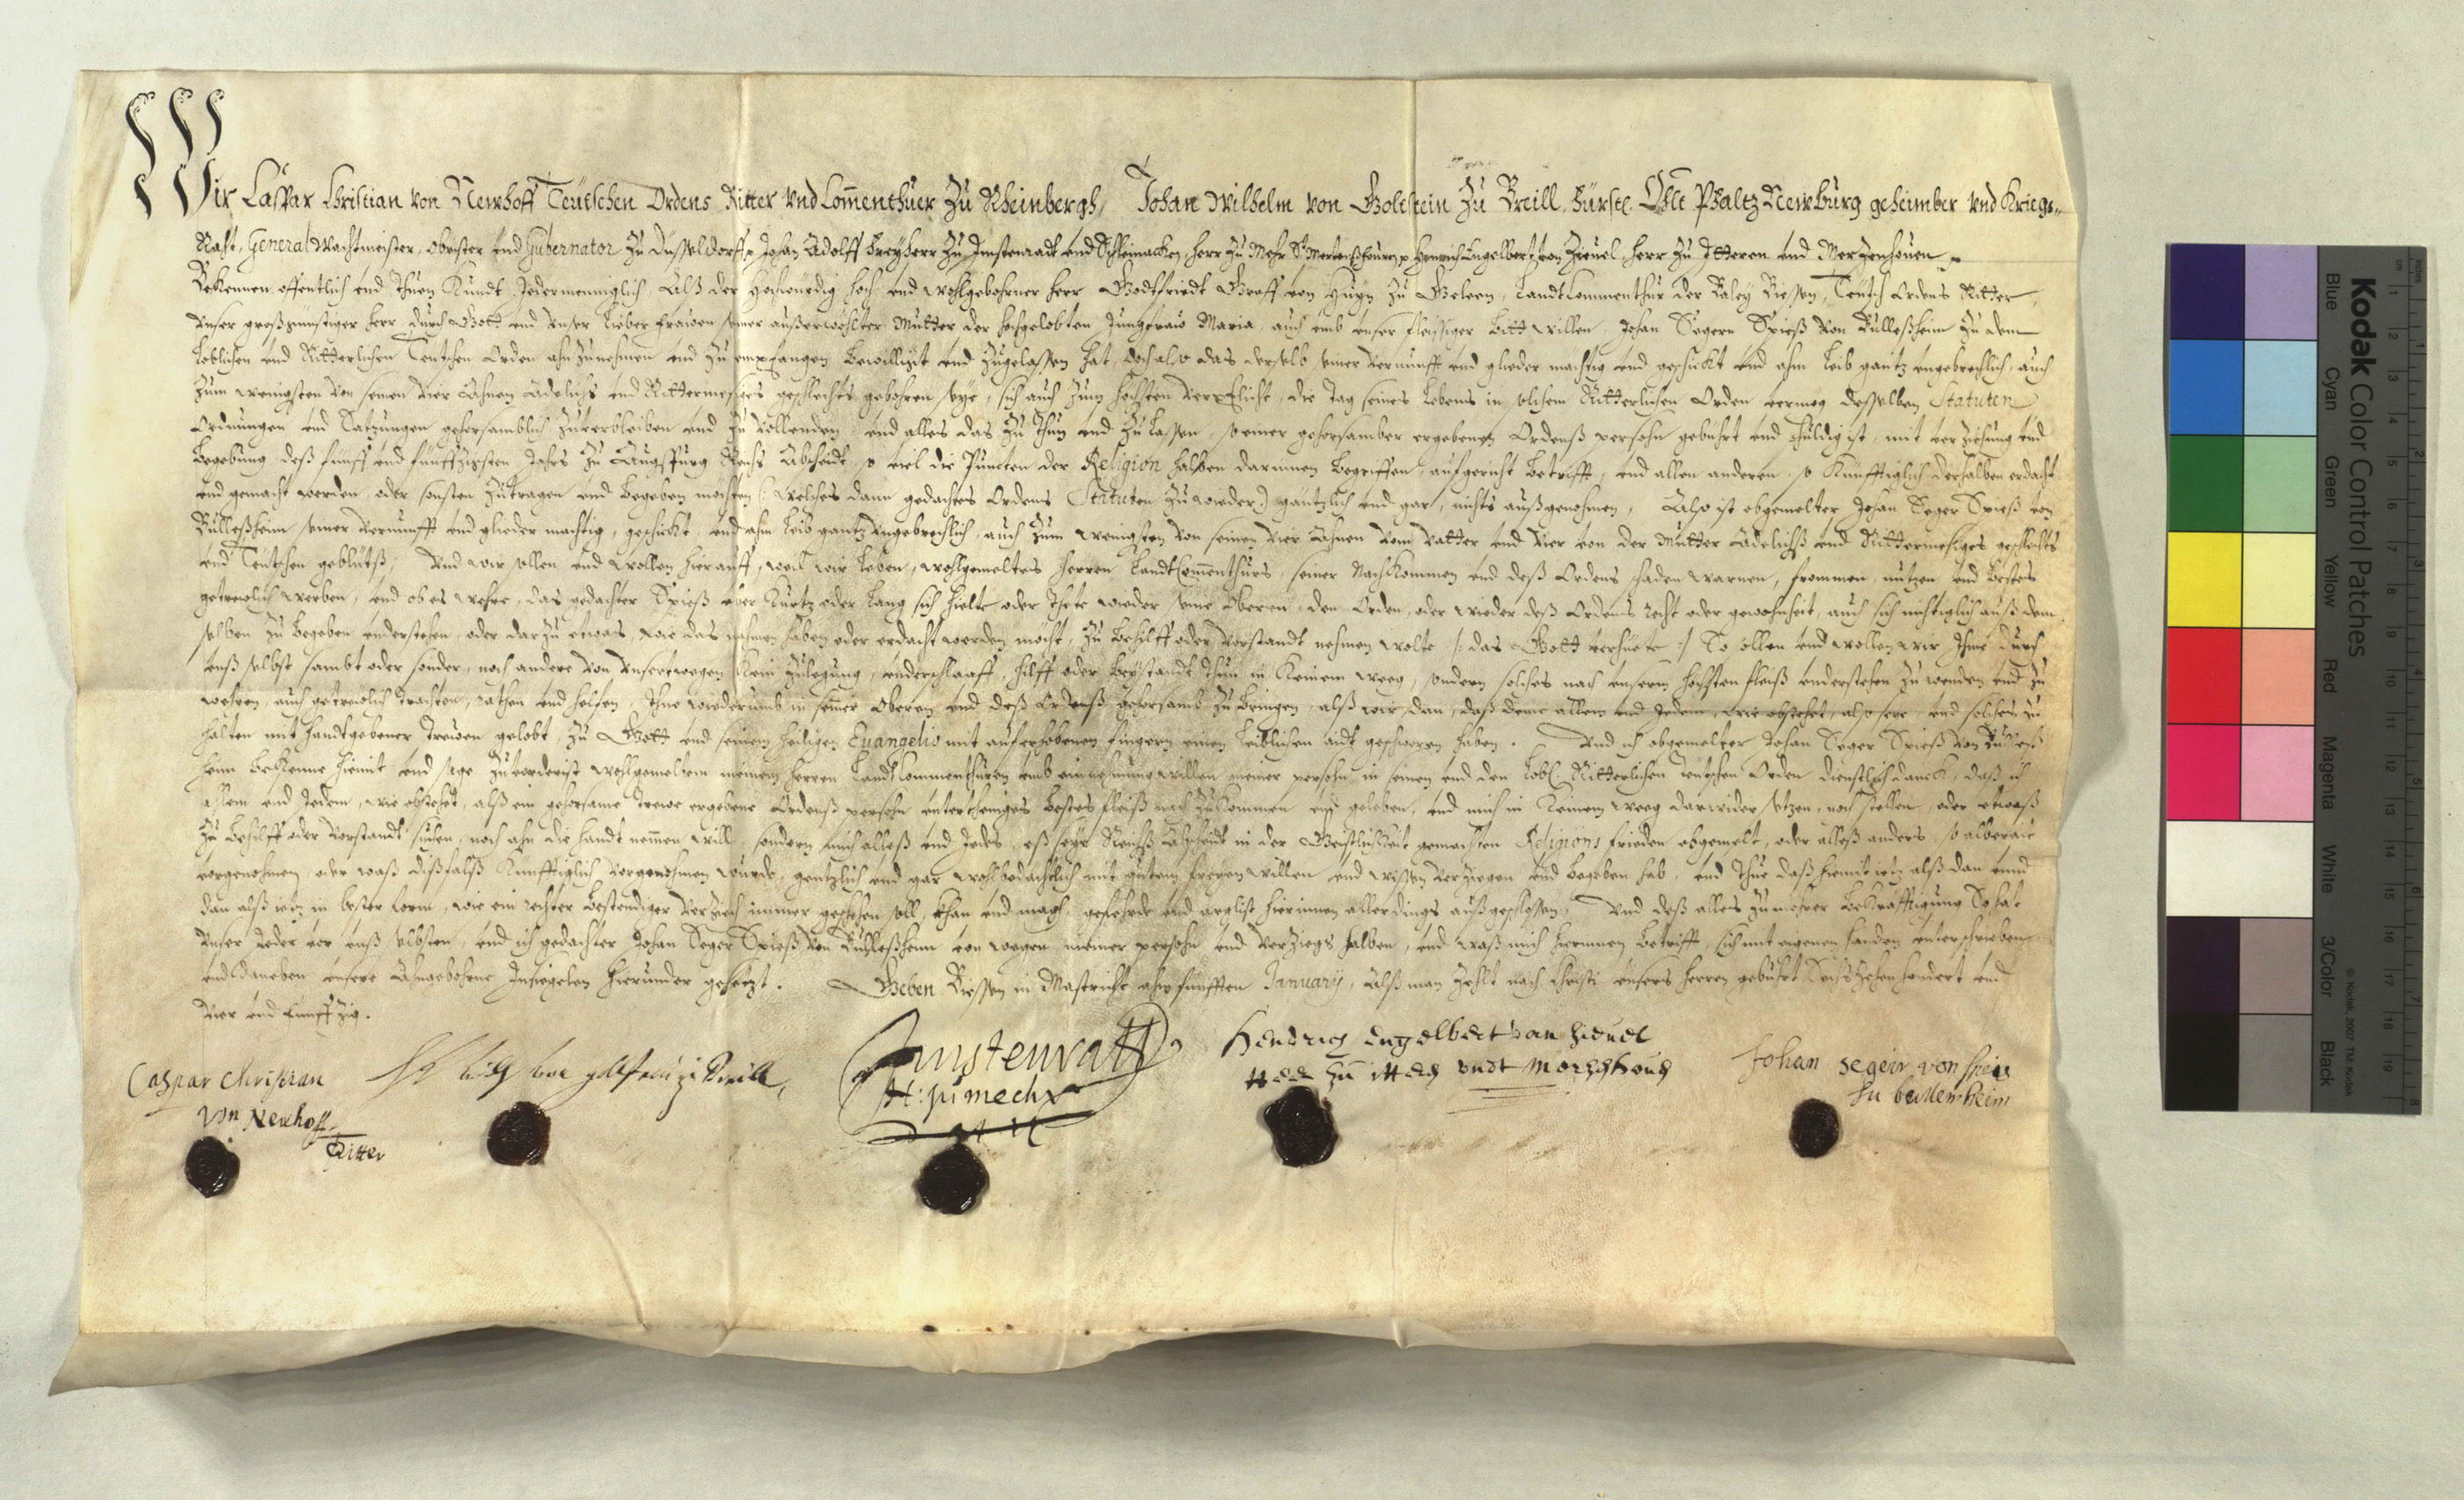 Wir Caspar Christian von Newhoff Teutschen Ordens Ritter vnd Commenthuer zu Rheinbergh, Johan Wilhelm von Goltstein zu Breill, Fürstl. Pfaltz Newburg geheimber vnd Kriegs-
Raht, General Wachtmeister, Obrister vnd Gubernator zu Düsseldorff, Johan Adolff Freyherr zu Imstenradt vnd, Herr zu Mehr, Henrich Engelbert von Zieuel, Herr zu Itteren vnd Merzenhouen
Bekennen offentlich vnd thuen kundt Jedermenniglich, Alß der Hochwürdig hoch vnd wohlgebohrner Herr Godtfriedt Graff von Huyn zu Geleen, Landt Commenthur der Baley Biessen, Teutsch Ordens Ritter,
Vnser großgünstiger Herr, durch Gott vnd Vnser Lieber Frawen seiner außerwöhlter Mutter der hochgelobten Jungfraw Maria, auch vmb vnser fleissiger Bitt willen, Johan Segern Spieß von Bulleßheim zu dem
Loblichen vnd Ritterlichen Teutschen Orden ahnzunehmen vnd zu empfangen bewilligt vnd zugelassen hat, doch also das derselb seiner vernunfft vnd glieder machtig vnd geschickt vnd ahm Leib gantz vngebrechlich, auch
zum wenigsten von seinen vier Ahnen Adelichs vnd Rittermesiges geschlechts gebohren seye, sich auch zum hochsten verpflicht, die Tag seines Lebens in solchem Ritterlichen Orden vermog desselben Statuten
Ordnungen vnd Satzungen gehorsamblich zuverbleiben vnd zu vollenden vnd alles das zu thun vnd zu lassen, so einer gehorsamber ergebenen Ordenß persohn gebührt vnd schuldig ist, mit verziehung vnd
begebung deß fünff vnd fünffzigsten Jahrs zu Augspurg Reichs Abscheidt, so viel die Puncten der Religion halben darinnen begriffen, aufgericht betrifft, vnd allen anderen, so künfftiglich derhalben erdacht
vnd gemacht werden, oder sonsten zutragen vnd begeben möchten (: welches dann gedachtes Ordens Statuten zu wieder :) gantzlich vnd gar, nichts außgenohmen, Also ist obgemelter Johan Seger Spieß von
Bulleßheim seiner vernunfft vnd glieder machtig, geschickt, vnd ahm Leib gantz vngebrechlich, auch zum wenigsten von seinen vier Ahnen vom Vatter vnd vier von der Mutter Adelichß vnd Rittermesiges geschlechts
vnd Teutschen geblütß, Vnd wir sollen vnd wollen hierauff, weil wir leben, wohlgemeltes Herren LandtCommenthurs, seiner Nachkommen vnd deß Ordens schaden warnen, frommen, nutzen vnd bestes
getrewlich werben, vnd ob es wehre, das gedachter Spieß vber kurtz oder lang sich hielte oder thete wieder seine Oberen, den Orden, oder wieder deß Ordens recht oder gewohnheit, auch sich nichtiglich auß dem
selben zu begeben vnderstehen, oder darzu etwas, wie das nahmen haben oder erdacht werden möcht, zu behilff oder vorstandt nehmen wolte /: das Gott verhuete :/ So sollen vnd wollen wir Ihme durch
vnß selbst sambt oder sonder, noch andere von vnsertwegen kein zulegung, vnderschlaaff, hilff oder beystandt thun in keinem weeg, sondern solches nach vnserm hochsten fleiß vnderstehen zu wenden vnd zu
wehren, auch getrewlich trachten, rathen vnd helfen, Ihne wiederumb in seiner Oberen vnd deß Ordenß gehorsamb zu bringen, alß wir dan, daß deme allem vnd Jedem, wie obstehet, also seye, vnd solches zu
halten mit handtgebener trewen gelobt, zu Gott vnd seinem heiligen Euangelio mit aufgehobenen fingern einen leiblichen aidt geschworen haben. Vnd ich obgemelter Johan Seger Spieß von Bulleß-
heim bekenne hiemit vnd sage zuvorderist wohlgemeltem meinem Herren Landt Commenthüren vmb einnehmung willen meiner persohn in seinen vnd den Lobl. Ritterlichen Teutschen Orden dienstlich danck, daß ich
allem vnd Jedem, wie obstehet, alß ein gehorsame trewe ergebene Ordenß persohn vnterthäniges bestes fleiß nachzukommen vnd geleben, vnd mich in keinem weeg darwider setzen, noch stellen, oder etwaß
zu behilff oder vorstandt suchen, noch ahn die handt nemmen will, sondern mich alleß vnd Jedes, eß seye Reichß Abscheidt in der Geistlichkeit gemachten Religions frieden obgemelt, oder alleß anders, so alberait
vorgenohmen, oder waß dißfalß künfftiglich vorgenohmen wurde, gentzlich vnd gar wohlbedachtlich mit gutem freyen willen vnd wissen verziegen vnd begeben hab, vnd thue daß hiemit ietz alß dan vnnd
dan alß ietz in bester form, wie ein rechter bestendiger verziech immer geschehen soll, khan vnd magh, gefehrde vnd arglist hierinnen allerdings außgeschlossen, Vnd deß alles zu mehrer bekräfftigung So hat
vnser Jeder vor vnß selbsten, vnd ich gedachter Johan Seger Spieß von Bulleßheim von wegen meiner persohn vnd verziegs halben, vnd waß mich hierinnen betrifft, sich mit eigenen handen vnterschrieben
vnd daneben vnsere Ahngebohrne Insiegelen hierunder gesetzt. Geben Biessen in Mastricht ahm fünfften January, Alß man zehlt nach Christi vnsers Herren geburth Sechszehenhondert vnd
vier vnd funffzig.
Caspar Christian
von Newhoff
Ritter
Imstenradt
H: zu mechr
Hendrich Engelbert van zieuel
Her zu itter vndt
Johan Segeir von spies
zu bullensheim
Kodak Color Control Patches
Blue Cyan Green Yellow Red Magenta White 3/Color Black
© Kodak, 2007 TM: Kodak